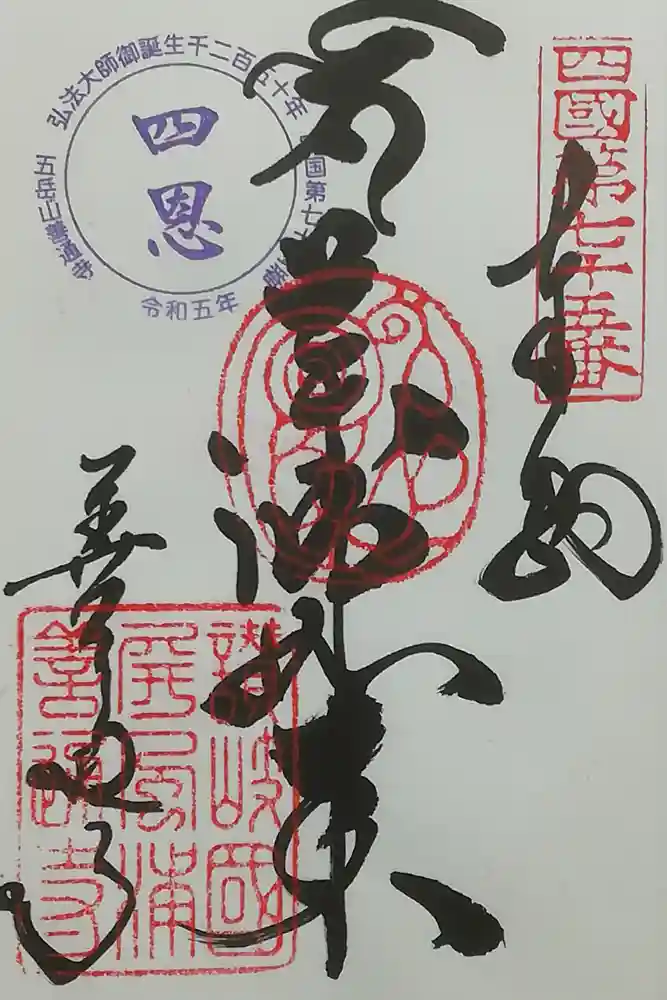 四國第七十五番
奉納
薬師如来
善通寺
弘法大師御誕生千二百五十年
四国第七十五番
五岳山善通寺
令和五年
四恩
讃岐國
屏風浦
善通寺